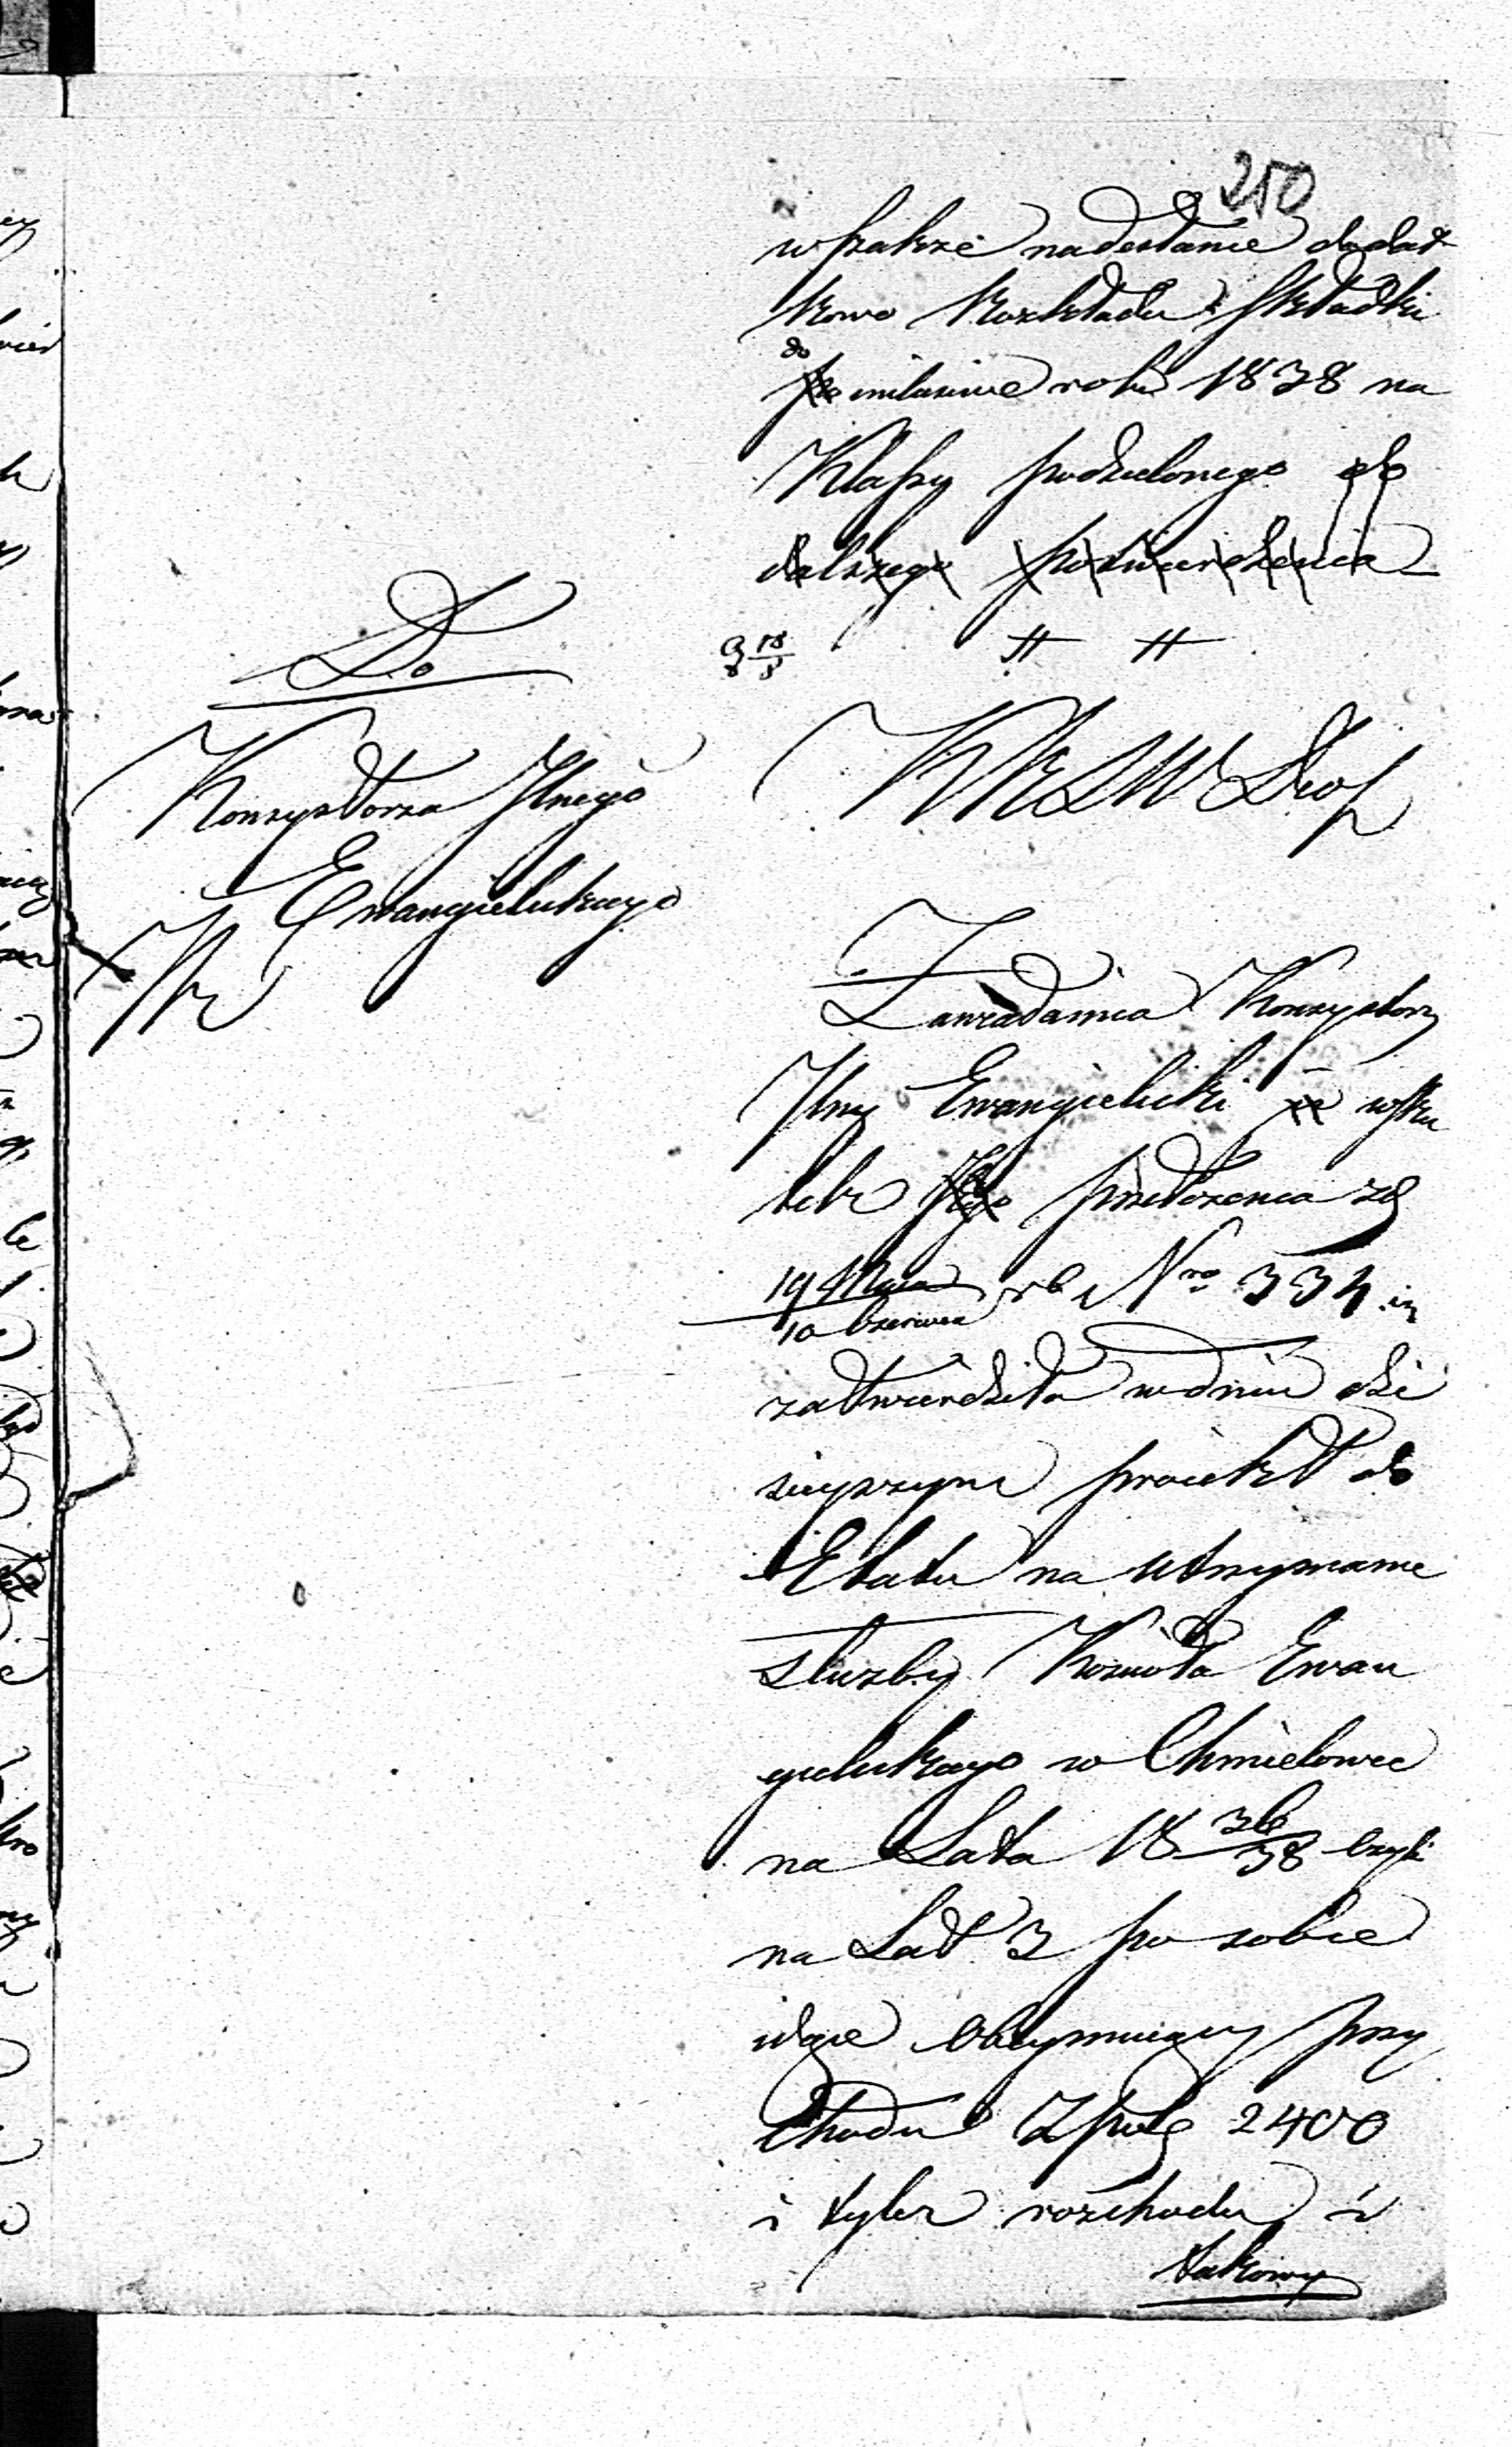 250
wszakże nadesłanie dodat
kowo Rozkładu Składki
do
na Klassy podzielonego do
dalszego potwierdzenia
Do
Konsystorza Jlnego
Ewangielickiego
KRSWDiOP
Zawiadamia Konsystorz
Jlny Ewangielicki że wsku
tek Jego przełożenia zd
19 Maja
10 Czerwca rb Nro 334 iż
zatwierdziła w dniu dzi
sieyszym proiekt do
Etatu na utrzymanie
służby Kościoła Ewan
gielickiego w Chmielowie
na Lata 18 36/38 czyli
na Lat 3 po sobie
idące obeymuiący przy
chodu Zpol 2400
i tyleż rozchodu i
takowy